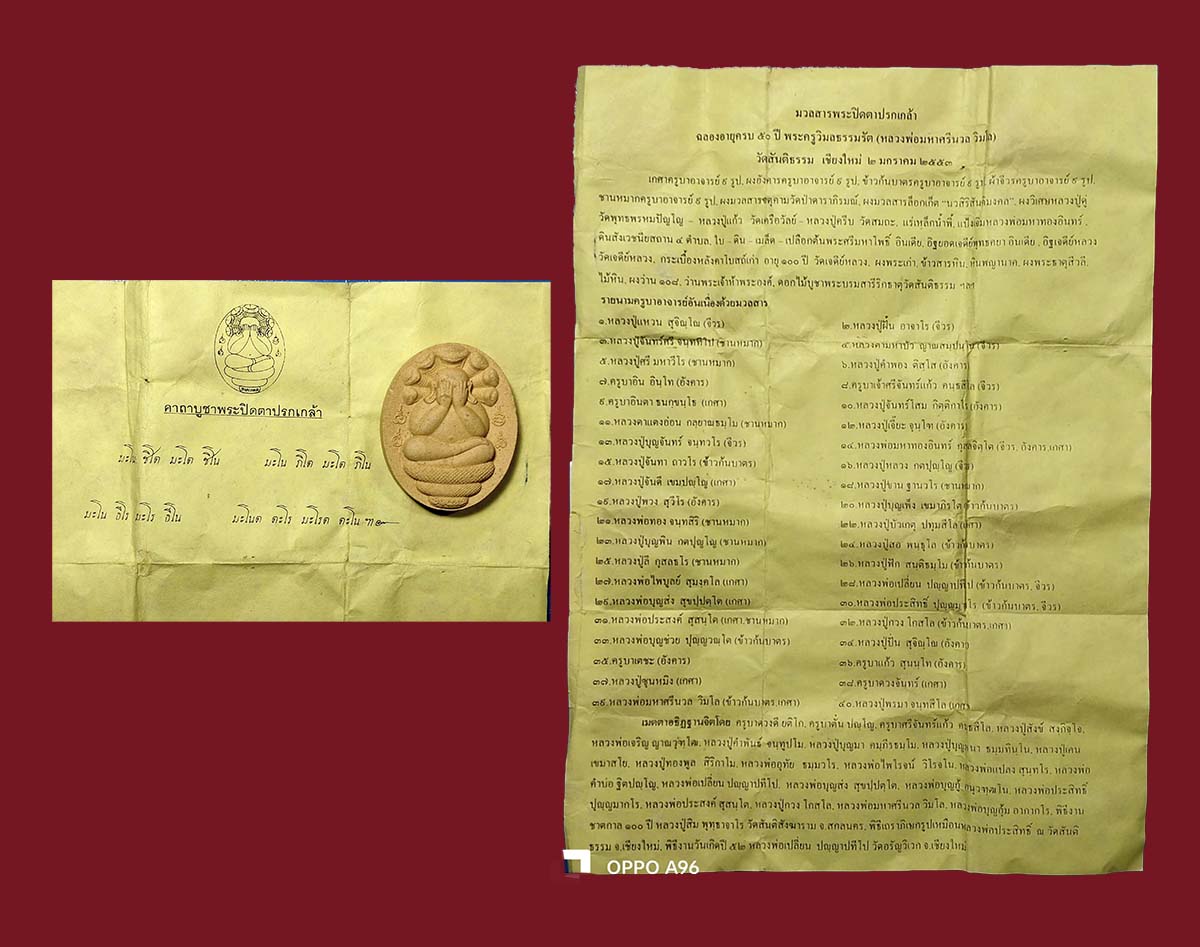 คาถาบูชาพระปิดตาปรกเกล้า
มะโน ชิโต มะโต ชิโน มะโน ภิโต มะโต ภิโน
มะโน ธิโร มะโร ธิโน มะโนต ตะโร มะโรต ตะโน ฯ
มวลสารพระปิดตาปรกเกล้า
ฉลองอายุครบ ๕๐ ปี พระครูวิมลธรรมรัต (หลวงพ่อมหาศรีนวล วิมโล)
วัดสันติธรรม เชียงใหม่ ๒ มกราคม ๒๕๕๓
เกศาครูบาอาจารย์ ๙ รูป, ผงอังคารครูบาอาจารย์ ๙ รูป, ข้าวก้นบาตรครูบาอาจารย์ ๙ รูป, ผ้าจีวรครูบาอาจารย์ ๙ รูป,
ชานหมากครูบาอาจารย์ ๙ รูป, ผงมวลสารจตุคามวัดป่าดาราภิรมณ์, ผงมวลสารล็อกเก็ต "นวสิริสันติมงคล", ผงวิเศษหลวงปู่ดู่
วัดพุทธพรหมปัญโญ - หลวงปู่แก้ว วัดเครือวัลย์ - หลวงปู่ครีบ วัดสมถะ, แร่เหล็กน้ำพี้, แป้งเจิมหลวงพ่อมหาทองอินทร์,
ดินสังเวชนียสถาน ๔ ตำบล, ใบ - ดิน - เมล็ด - เปลือกต้นพระศรีมหาโพธิ์ อินเดีย, อิฐยอดเจดีย์พุทธคยา อินเดีย, อิฐเจดีย์หลวง
วัดเจดีย์หลวง, กระเบื้องหลังคาโบสถ์เก่า อายุ ๑๐๐ ปี วัดเจดีย์หลวง, ผงพระเก่า, ข้าวสารหิน, หินพญานาค, ผงพระธาตุสีวลี,
ไม้หิน, ผงว่าน ๑๐๘, ว่านพระเจ้าห้าพระองค์, ดอกไม้บูชาพระบรมสารีริกธาตุวัดสันติธรรม ฯลฯ
รายนามครูบาอาจารย์อันเนื่องด้วยมวลสาร
๑.หลวงปู่แหวน สุจิณฺโณ (จีวร) ๒.หลวงปู่ฝั้น อาจาโร (จีวร)
๓.หลวงปู่จันทร์ศรี จนฺททีโป (ชานหมาก) ๔.หลวงตามหาบัว ญาณสมฺปนฺโน (จีวร)
๕.หลวงปู่ศรี มหาวีโร (ชานหมาก) ๖.หลวงปู่คำพอง ติสฺโส (อังคาร)
๗.ครูบาอิน อินฺโท (อังคาร) ๘.ครูบาเจ้าศรีจันทร์แก้ว คนฺธสีโล (จีวร)
๙.ครูบาอินตา ธนกฺขนฺโธ (เกศา) ๑๐.หลวงปู่จันทร์โสม กิตฺติกาโร (อังคาร)
๑๑.หลวงตาแตงอ่อน กลฺยาณธมฺโม (ชานหมาก) ๑๒.หลวงปู่เจี๊ยะ จุนฺโท (อังคาร)
๑๓.หลวงปู่บุญจันทร์ จนฺทวโร (จีวร) ๑๔.หลวงพ่อมหาทองอินทร์ กุสลจิตฺโต (จีวร, อังคาร,เกศา)
๑๕.หลวงปู่จันทา ถาวโร (ข้าวก้นบาตร) ๑๖.หลวงปู่หลวง กตปุญฺโญ (จีวร)
๑๗.หลวงปู่จันดี เขมปญฺโญ (เกศา) ๑๘.หลวงปู่ขาน ฐานวโร (ชานหมาก)
๑๙.หลวงปู่พวง สุวีโร (อังคาร) ๒๐.หลวงปู่บุญเพ็ง เขมาภิรโต (ข้าวก้นบาตร)
๒๑.หลวงพ่อทอง จนฺทสิริ (ชานหมาก) ๒๒.หลวงปู่บัวเกตุ ปทุมสิโล (เกศา)
๒๓.หลวงปู่บุญพิน กตปุญฺโญ (ชานหมาก) ๒๔.หลวงปู่สอ พนฺธุโล (ข้าวก้นบาตร)
๒๕.หลวงปู่ลี กุสลธโร (ชานหมาก) ๒๖.หลวงปู่ฟัก สนฺติธมฺโม (ข้าวก้นบาตร)
๒๗.หลวงพ่อไพบูลย์ สุมงฺคโล (เกศา) ๒๘.หลวงพ่อเปลี่ยน ปญฺญาปทีโป (ข้าวก้นบาตร, จีวร)
๒๙.หลวงพ่อบุญส่ง สุขปฺปตฺโต (เกศา) ๓๐.หลวงพ่อประสิทธิ์ ปุญฺญมากโร (ข้าวก้นบาตร, จีวร)
๓๑.หลวงพ่อประสงค์ สุสนฺโต (เกศา,ชานหมาก) ๓๒.หลวงปู่กวง โกสโล (ข้าวก้นบาตร,เกศา)
๓๓.หลวงพ่อบุญช่วย ปุญฺญวณฺโต (ข้าวก้นบาตร) ๓๔.หลวงปู่ปั่น สุจิณฺโณ (อังคาร)
๓๕.ครูบาเตชะ (อังคาร) ๓๖.ครูบาแก้ว สุนนฺโท (อังคาร)
๓๗.หลวงปู่ซุนหมิง (เกศา) ๓๘.ครูบาดวงจันทร์ (เกศา)
๓๙.หลวงพ่อมหาศรีนวล วิมโล (ข้าวก้นบาตร,เกศา) ๔๐.หลวงปู่พรมา จนฺทสีโล (เกศา)
เมตตาอธิฏฐานจิตโดย ครูบาดวงดี ยติโก, ครูบาตั๋น ปญฺโญ, ครูบาศรีจันทร์แก้ว คนฺธสีโล, หลวงปู่สังข์ สงกิจฺโจ,
หลวงพ่อเจริญ ญาณวุฑฺโฒ, หลวงปู่คำพันธ์ จนฺทูปโม, หลวงปู่บุญมา คมฺภีรธมฺโม, หลวงปู่บุญ ธมฺมทินฺโน, หลวงปู่เคน
เขมาสโย, หลวงปู่ทองพูล สิริกาโม, หลวงพ่ออุทัย ธมฺมวโร, หลวงพ่อไพโรจน์ วิโรจโน, หลวงพ่อแปลง สุนฺทโร, หลวงพ่อ
คำบ่อ ฐิตปญฺโญ, หลวงพ่อเปลี่ยน ปญฺญาปทีโป, หลวงพ่อบุญส่ง สุขปฺปตฺโต, หลวงพ่อบุญกู้ อนุวฑฺฒโน, หลวงพ่อประสิทธิ์
ปุญฺญมากโร, หลวงพ่อประสงค์ สุสนฺโต, หลวงปู่กวง โกสโล, หลวงพ่อมหาศรีนวล วิมโล, หลวงพ่อบุญกุ้ม อาภากโร, พิธีงาน
ชาตกาล ๑๐๐ ปี หลวงปู่สิม พุทฺธาจาโร วัดสันติสังฆาราม จ.สกลนคร, พิธีเถราภิเษกรูปเหมือนหลวงพ่อประสิทธิ์ ณ วัดสันติ
ธรรม จ.เชียงใหม่, พิธีงานวันเกิดปี ๕๒ หลวงพ่อเปลี่ยน ปญฺญาปทีโป วัดอรัญวิเวก จ.เชียงใหม่
OPPO A96